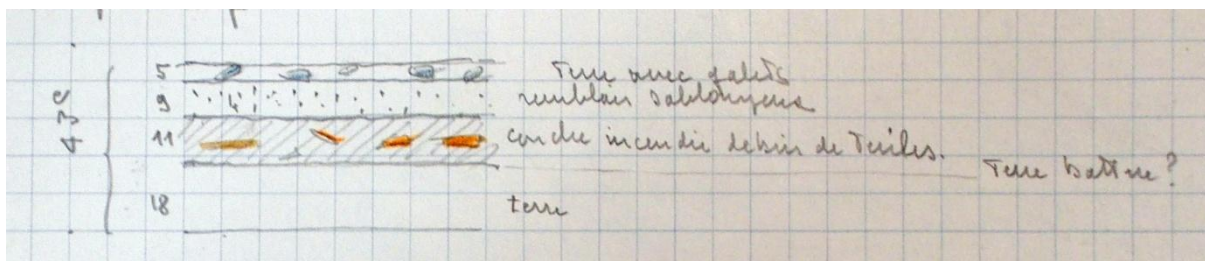 5 Terre avec galets
9 remblais sablonneux
11 couche incendie débris de Tuiles.
Terre battue?
18 terre
43c